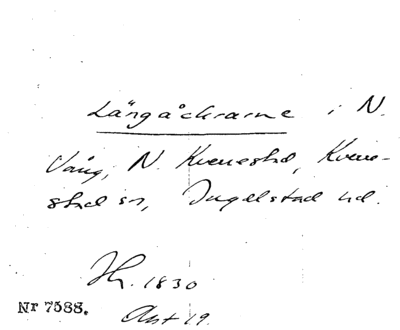 Långåkrarne i N.
Vång, N. Kvenestad, Kvene-
stad sn, Ingelstad hd.
Hr. 1830
Nr 7588.
Akt 19.